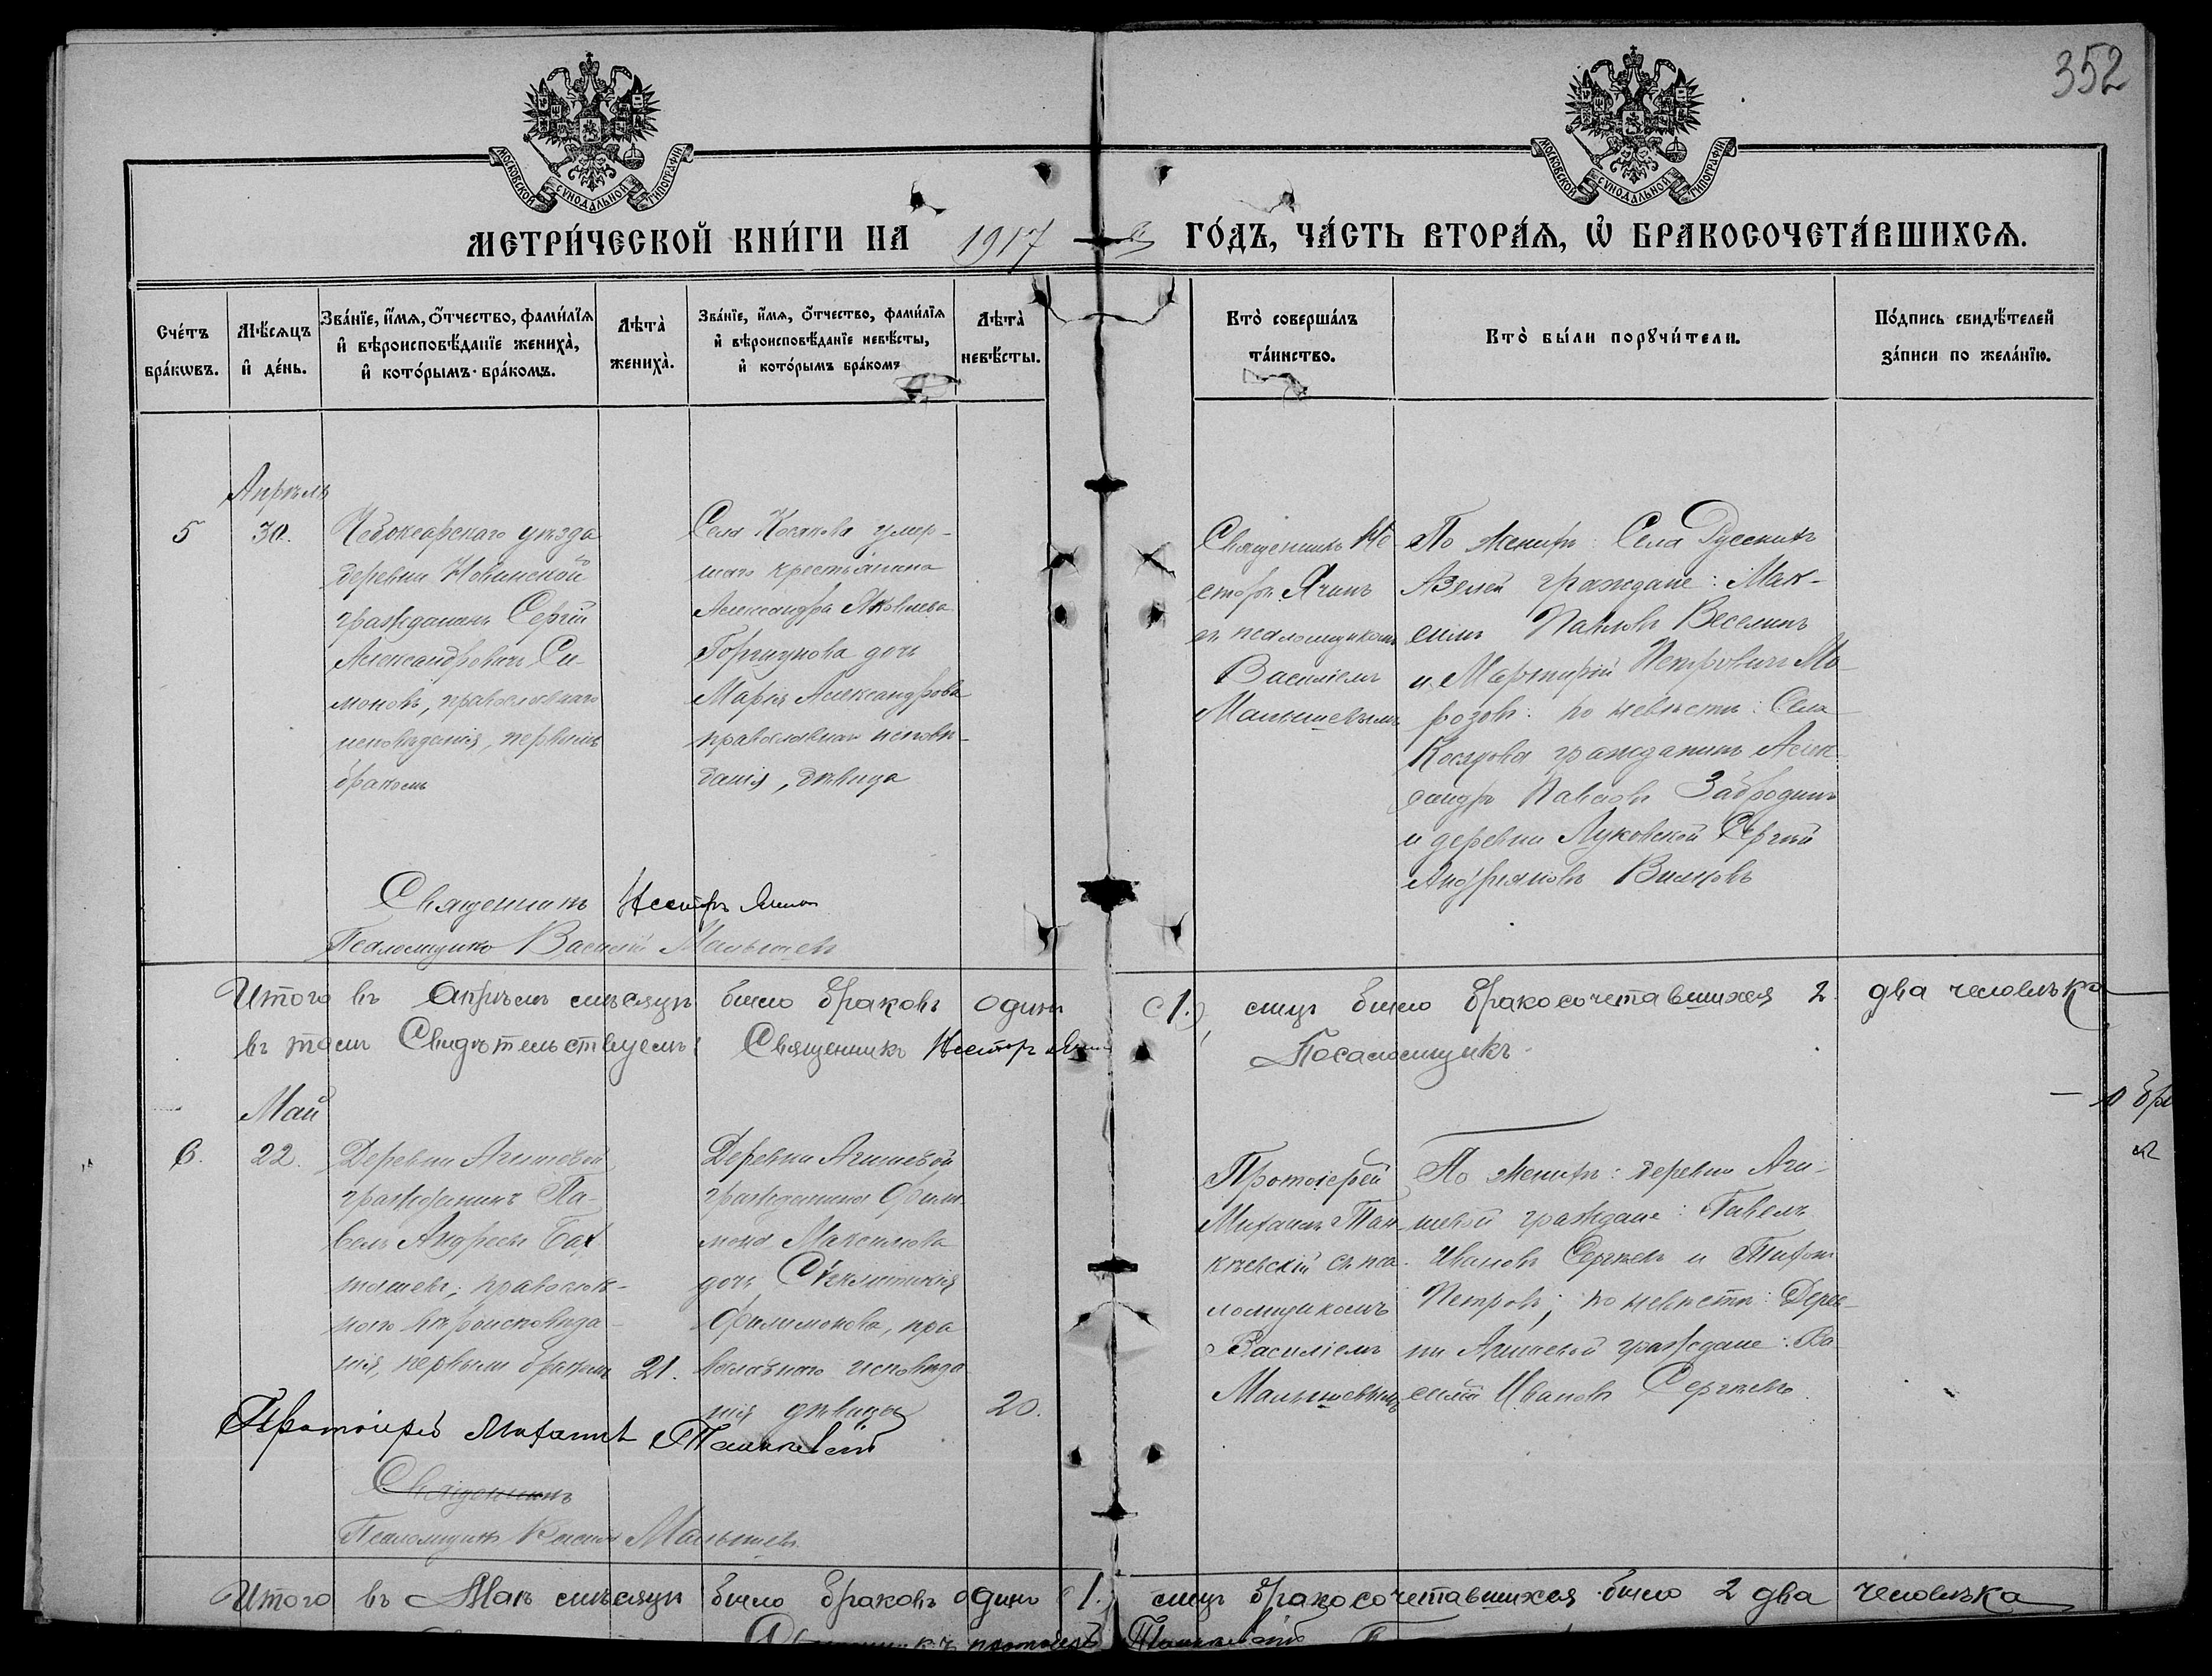 352
МОСКОВСКОЙ СѴНОДАЛЬНОЙ ТИПОГРАФІИ
МОСКОВСКОЙ СѴНОДАЛЬНОЙ ТИПОГРАФІИ
МЕТРИ́ЧЕСКОЙ КНИ́ГИ НА 1917 ГО́ДЪ, ЧА́СТЬ ВТОРА́Ѧ, Ѡ҆ БРАКОСОЧЕТА́ВШИХСѦ.
Сче́тъ
бра́кѡвъ.
Мѣ́сяцъ
и҆ де́нь.
Зва́нїе, и҆́мѧ, о҆́тчество, фами́лїѧ
и҆ вѣроисповѣ́данїе жениха̀,
и҆ кото́рымъ бра́комъ.
Лѣта̀
жениха̀.
Зва́нїе, и҆́мѧ, о҆́тчество, фами́лїѧ
и҆ вѣроисповѣ́данїе невѣ́сты,
и҆ кото́рымъ бра́комъ
Лѣта̀
невѣ́сты.
Кто̀ соверша́лъ
та́инство.
Кто̀ бы́ли порꙋчи́тели.
По́дпись свидѣ́телей
за́писи по жела́нїю.
Апрѣль
5
30.
Чебоксарскаго уѣзда
деревни Новинской
гражданинъ Сергій
Александровичъ Си-
моновъ, православнаго
исповѣданія, первымъ
бракомъ
Села Козякова умер-
шаго крестьянина
Александра Яковлева
Горшунова дочь
Марія Александрова
православнаго исповѣ-
данія, дѣвица
Священникъ Не
сторъ Ячинъ
съ псаломщикомъ
Василіемъ
Малышевымъ
По женихѣ: Села Русскихъ
Азелей граждане: Мак-
симъ Павловъ Веселинъ
и Мартирій Петровичъ Мо
розовъ: по невѣстѣ: Села
Козякова гражданинъ Алек
сандръ Павловъ Забродинъ
и деревни Луковской Сергій
Андріяновъ Вилковъ
Священникъ Несторъ Ячинъ
Псаломщикъ Василій Малышевъ
Итого въ Апрѣлѣ мѣсяцѣ было браковъ одинъ (1.) лицъ было бракосочетавшихся 2 два человѣка
въ томъ Свидѣтельствуемъ: Священникъ Несторъ Ячинъ Псаломщикъ
Май
6.
22.
Деревни Агишевой
гражданинъ Па-
велъ Андреевъ Бах
тишевъ, православ-
наго вѣроисповѣда-
нія, первымъ бракомъ
21.
Деревни Агишевой
гражданина Фили
мона Максимова
дочь Сѵнклитикія
Филимонова, пра
вославнаго исповѣда
нія дѣвица
20.
Протоіерей
Михаилъ
съ пса
ломщикомъ
Василіемъ
Малышевымъ
По женихѣ: деревни Аги-
шевой граждане: Павелъ
Ивановъ Сергѣевъ и Тихонъ
Петровъ; по невѣстѣ: Дерев-
ни Агишевой граждане: Ва
силій Ивановъ Сергѣевъ
Протоіерей Михаилъ
Священникъ
Псаломщикъ Василій Малышевъ
Итого въ Маѣ мѣсяцѣ было браковъ одинъ (1.) лицъ бракосочетавшихся было 2 два человѣка